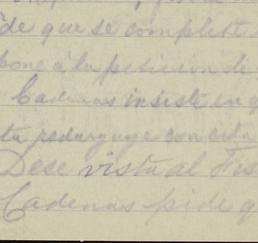 de que se complete
pone à la peticion de
Cadenas insiste en q
ta redarguye con esta
Dese vista al Fis
Cadenas pide q